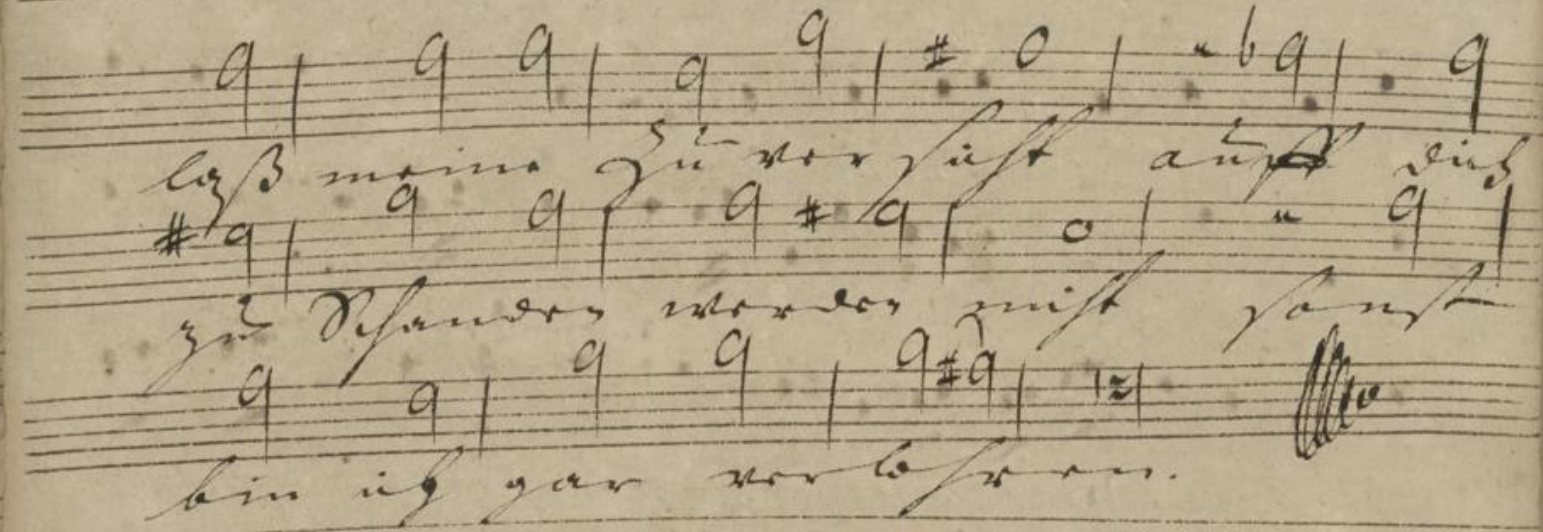 laß meine Zuversicht auff dich
zu Schanden werden nicht sonst
bin ich gar verlohren.